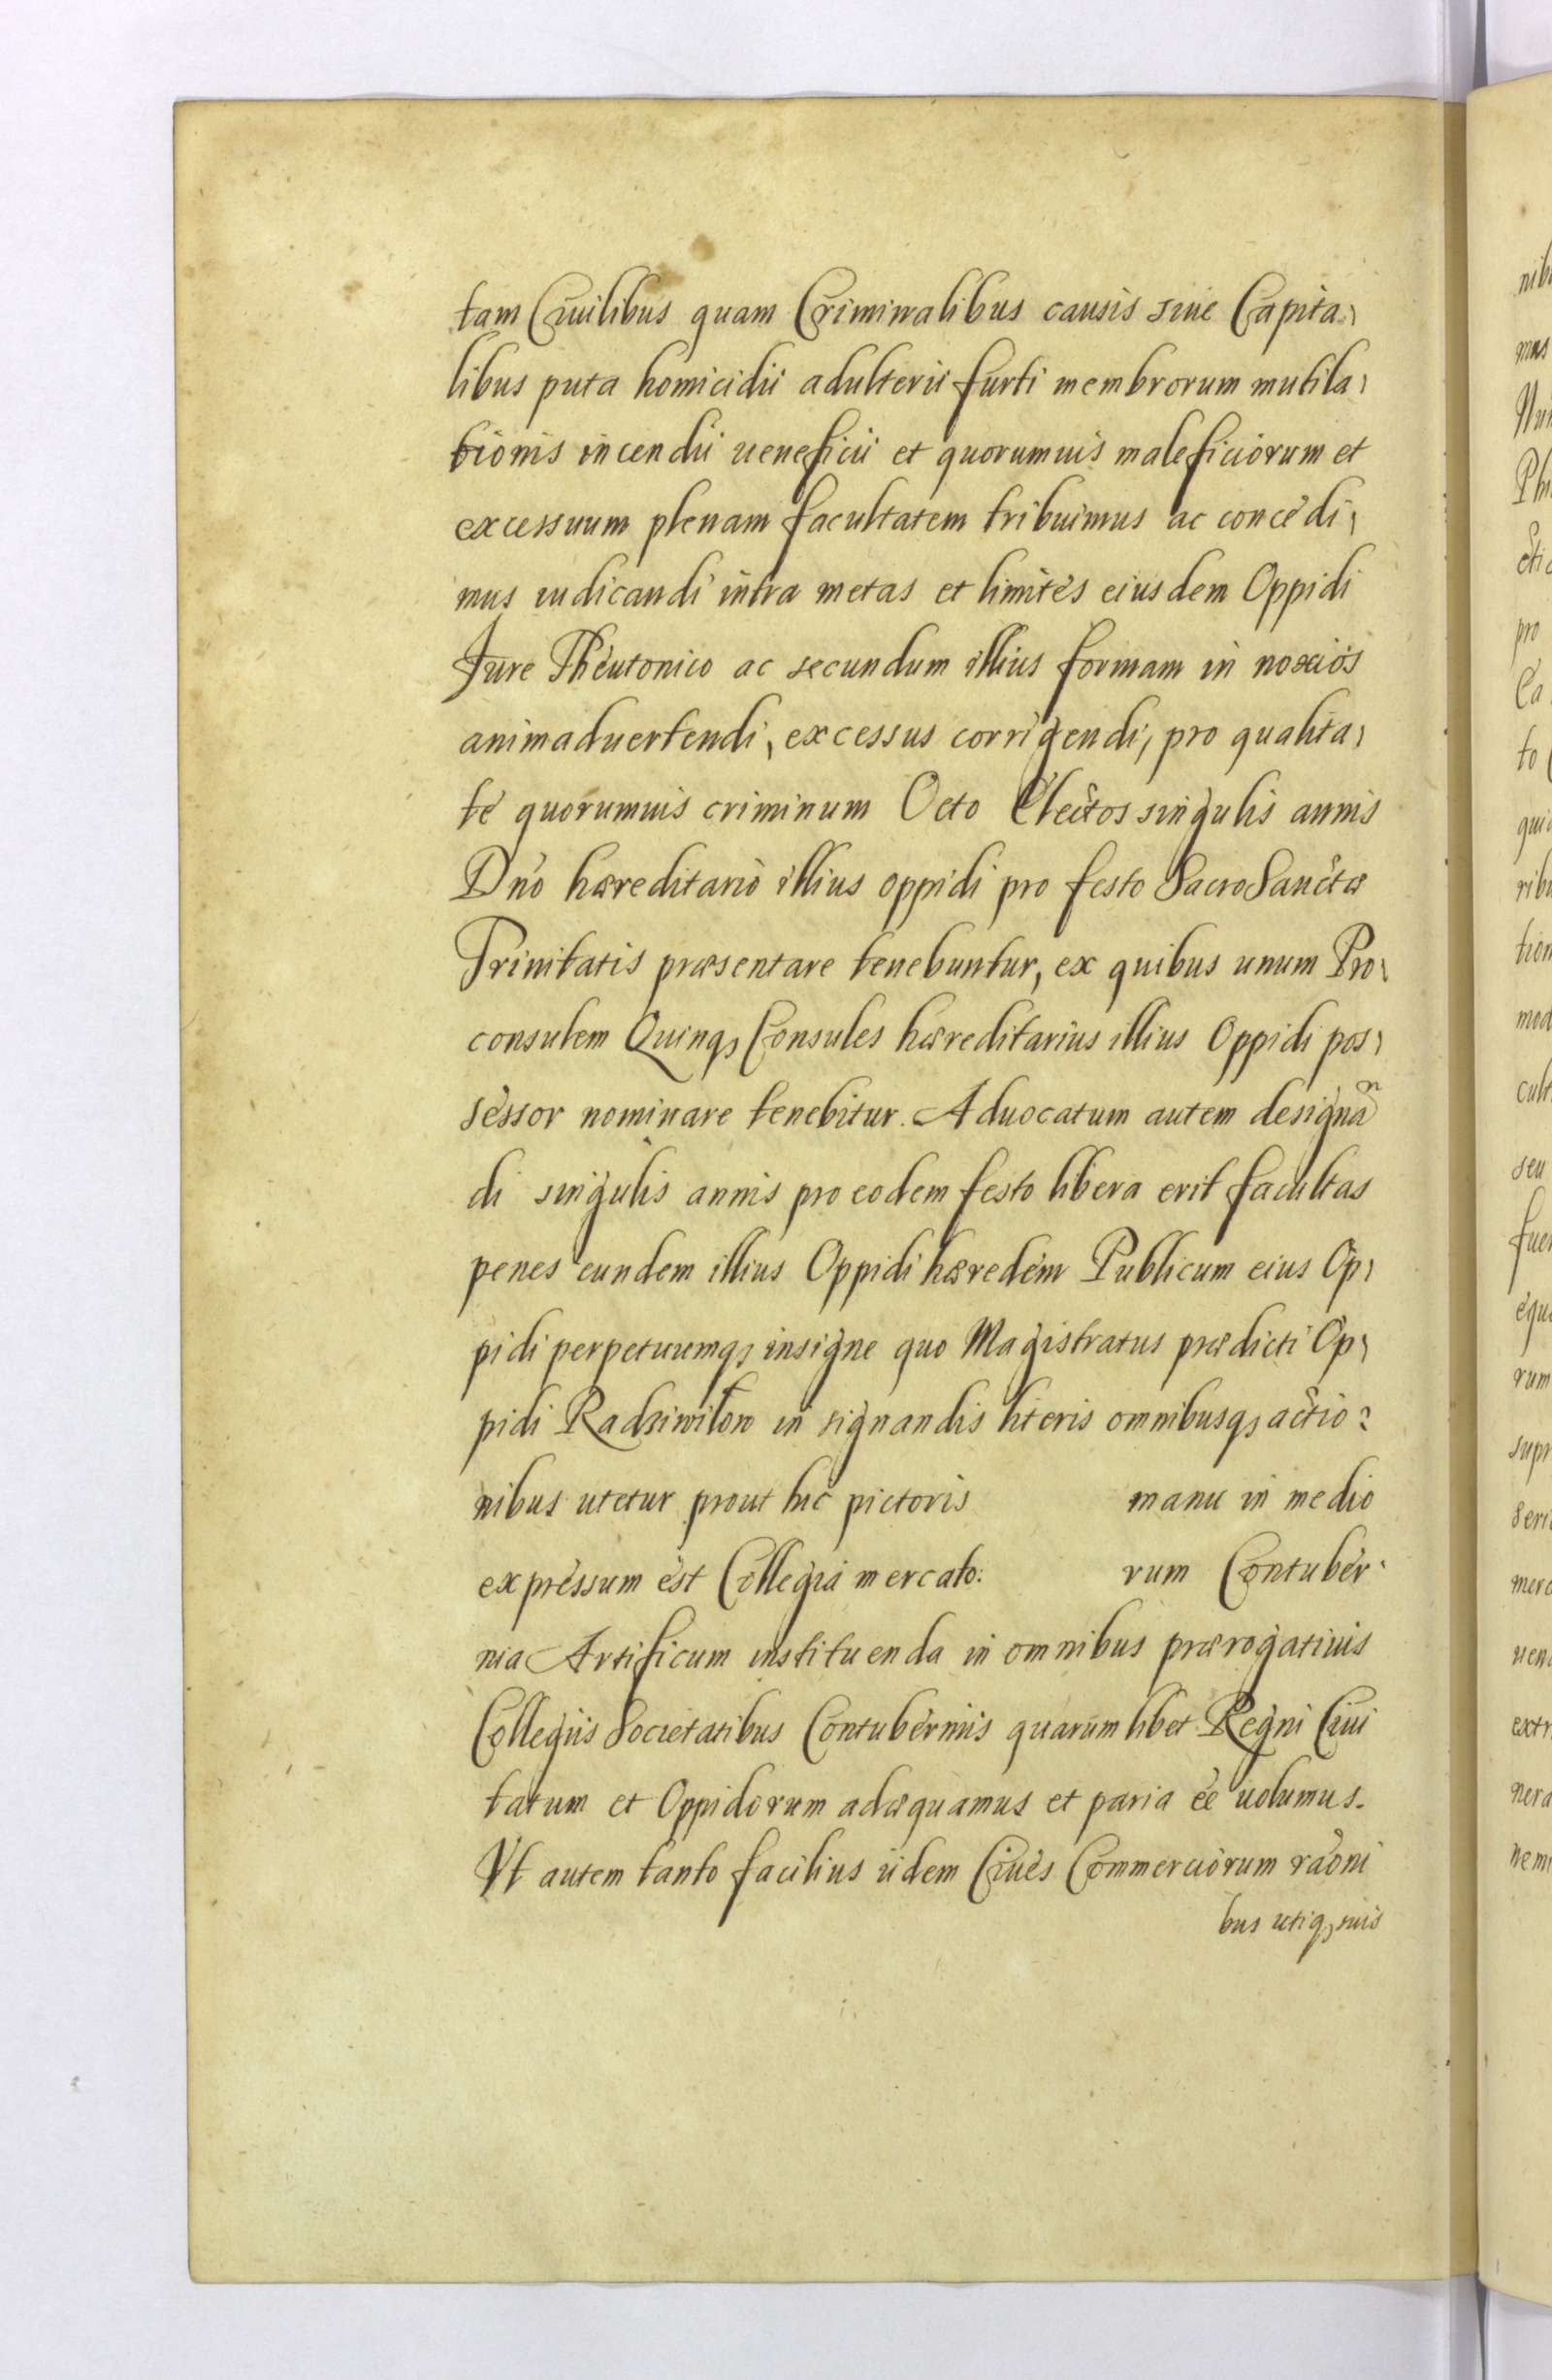 tam Ciuilibus quam Criminalibus causis siue Capita,
libus puta homicidii adulterii furti membrorum mutila,
tionis incendii ueneficii et quorumuis maleficiorum et
excessuum plenam facultatem tribuimus ac concedi,
mus iudicandi intra metas et limites eiusdem Oppidi
Jure Theutonico ac secundum illius formam in noxios
animaduertendi, excessus corrigendi, pro qualita,
te quorumuis criminum Octo Electos singulis annis
Dn̄o hæreditario illius oppidi pro festo SacroSanctæ
Trinitatis præsentare tenebuntur, ex quibus unum Pro,
consulem Quinqꝫ Consules hæreditarius illius Oppidi pos,
sessor nominare tenebitur. Aduocatum autem designaⁿ
di singulis annis pro eodem festo libera erit facultas
penes eundem illius Oppidi hæredem Publicum eius Op,
pidi perpetuumqꝫ insigne quo Magistratus prædicti Op,
pidi Radziwiłow in signandis literis omnibusqꝫ actio,
nibus utetur prout hic pictoris manu in medio
expressum est Collegia mercato: rum Contuber,
nia Artificum instituenda in omnibus prærogatiuis
Collegiis Societatibus Contuberniis quarumlibet Regni Ciui
tatum et Oppidorum adæquamus et paria ēe uolumus.
Vt autem tanto facilius iidem Ciues Commerciorum rāoni
bus utiqꝫ suis
nib
mus
Phi
pro
Ca
to
qui
ribu
tion
mod
cult
seu
fuer
equ
rum
supr
Seri
merc
uen
extr
nera
nem